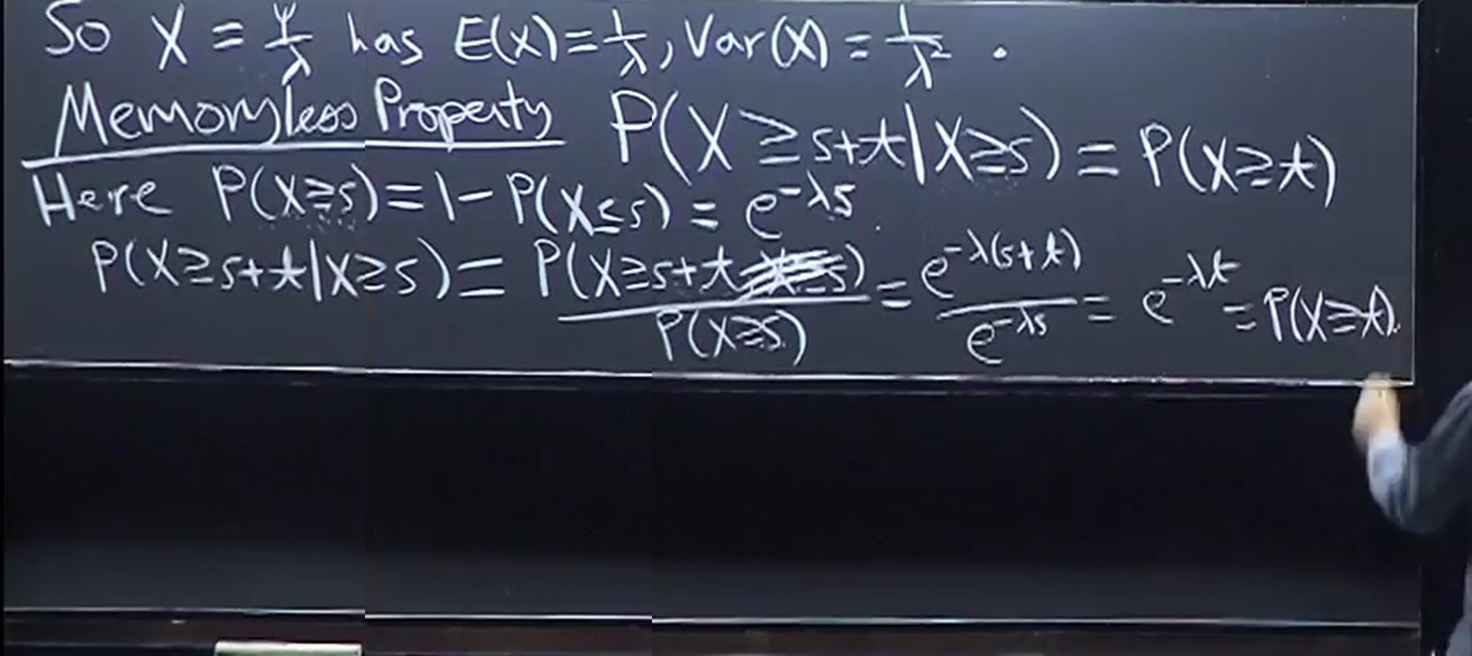 So X = Y/λ has E(X) = 1/λ, Var(X) = 1/λ².
Memoryless Property P(X ≥ s+t | X ≥ s) = P(X ≥ t)
Here P(X ≥ s) = 1 - P(X ≤ s) = e^{-λs}.
P(X ≥ s+t | X ≥ s) = P(X ≥ s+t)/P(X ≥ s) = e^{-λ(s+t)}/e^{-λs} = e^{-λt} = P(X ≥ t).